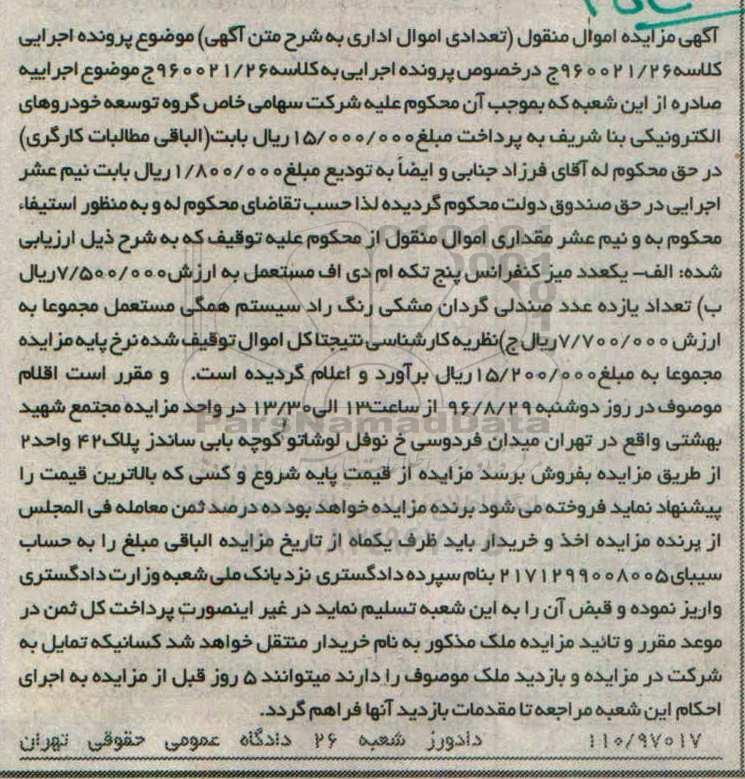 آگهی مزایده اموال منقول (تعدادی اموال اداری به شرح متن آگهی) موضوع پرونده اجرایی
کلاسه ۹۶۰۰۲۱/۲۶ج درخصوص پرونده اجرایی به کلاسه ۹۶۰۰۲۱/۲۶ج موضوع اجراییه
صادره از این شعبه که بموجب آن محکوم علیه شرکت سهامی خاص گروه توسعه خودروهای
الکترونیکی بنا شریف به پرداخت مبلغ ۱۵/۰۰۰/۰۰۰ ریال بابت (الباقی مطالبات کارگری)
در حق محکوم له آقای فرزاد جنابی و ایضاً به تودیع مبلغ ۱/۸۰۰/۰۰۰ ریال بابت نیم عشر
اجرایی در حق صندوق دولت محکوم گردیده لذا حسب تقاضای محکوم له و به منظور استیفاء
محکوم به و نیم عشر مقداری اموال منقول از محکوم علیه توقیف که به شرح ذیل ارزیابی
شده: الف- یکعدد میز کنفرانس پنج تکه ام دی اف مستعمل به ارزش ۷/۵۰۰/۰۰۰ ریال
ب) تعداد یازده عدد صندلی گردان مشکی رنگ راد سیستم همگی مستعمل مجموعا به
ارزش ۷/۷۰۰/۰۰۰ ریال ج) نظریه کارشناسی نتیجتا کل اموال توقیف شده نرخ پایه مزایده
مجموعا به مبلغ ۱۵/۲۰۰/۰۰۰ ریال برآورد و اعلام گردیده است. و مقرر است اقلام
موصوف در روز دوشنبه ۹۶/۸/۲۹ از ساعت ۱۳ الی ۱۳/۳۰ در واحد مزایده مجتمع شهید
بهشتی واقع در تهران میدان فردوسی خ نوفل لوشاتو کوچه بابی ساندز پلاک ۴۲ واحد ۲
از طریق مزایده بفروش برسد مزایده از قیمت پایه شروع و کسی که بالاترین قیمت را
پیشنهاد نماید فروخته می شود برنده مزایده خواهد بود ده درصد ثمن معامله فی المجلس
از برنده مزایده اخذ و خریدار باید ظرف یکماه از تاریخ مزایده الباقی مبلغ را به حساب
سیبای ۲۱۷۱۲۹۹۰۰۸۰۰۵ بنام سپرده دادگستری نزد بانک ملی شعبه وزارت دادگستری
واریز نموده و قبض آن را به این شعبه تسلیم نماید در غیر اینصورت پرداخت کل ثمن در
موعد مقرر و تائید مزایده ملک مذکور به نام خریدار منتقل خواهد شد کسانیکه تمایل به
شرکت در مزایده و بازدید ملک موصوف را دارند میتوانند ۵ روز قبل از مزایده به اجرای
احکام این شعبه مراجعه تا مقدمات بازدید آنها فراهم گردد.
۱۱۰/۹۷۰۱۷ دادورز شعبه ۲۶ دادگاه عمومی حقوقی تهران
ParsNamadData